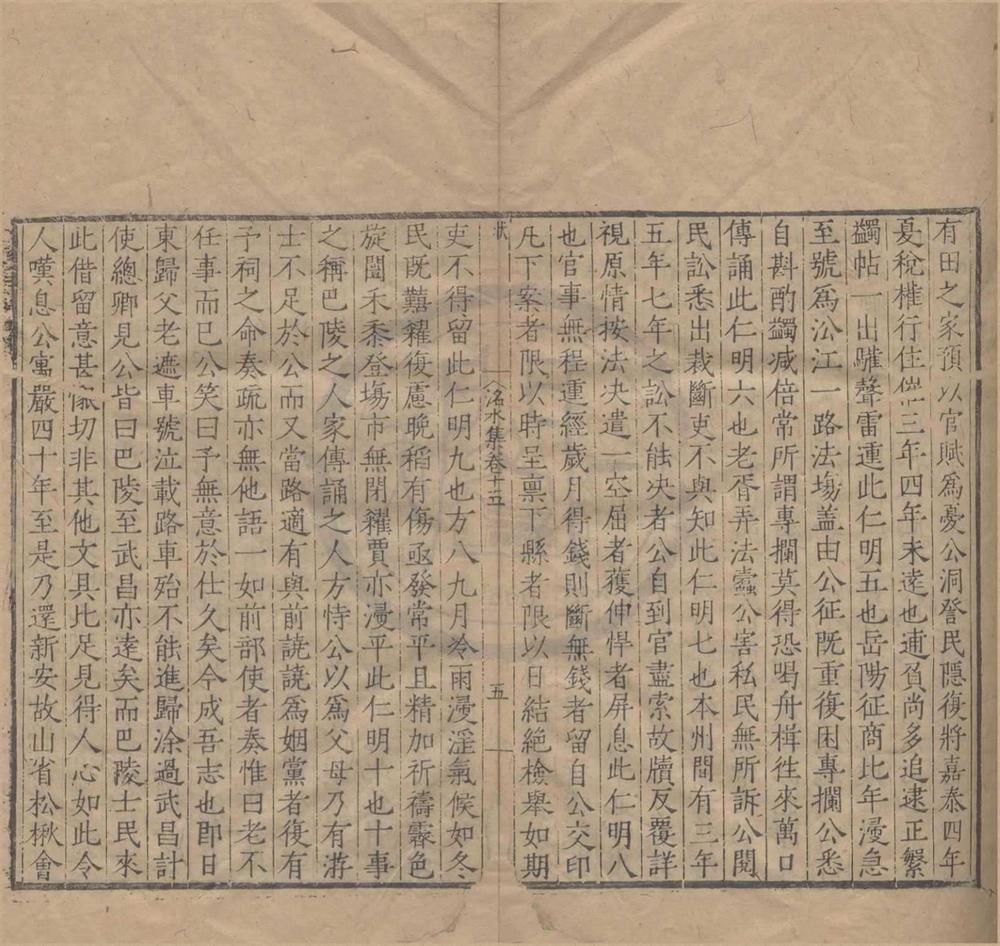 有田之家預以官賦為憂公洞詧民隱復將嘉泰四年
夏稅權行住催三年四年未逹也逋負尚多追逮正繫
蠲帖一出驩聲雷運此仁明五也岳陽征商比年漫急
至號為沿江一路法塲盖由公征既重復困專攔公悉
自斟酌蠲减倍常所謂專攔莫得恐喝舟楫徃來萬口
傳誦此仁明六也老胥弄法蠹公害私民無所訴公閱
民訟悉出裁斷吏不與知此仁明七也本州間有三年
五年七年之訟不能决者公自到官盡索故牘反覆詳
視原情按法决遣一空屈者獲伸悍者屏息此仁明八
也官事無程運經歲月得錢則斷無錢者留自公交印
凡下案者限以時呈禀下縣者限以日結絕檢舉如期
洺水集卷十五
五
吏不得留此仁明九也方八九月冷雨漫淫氣候如冬
民既囏糴復慮晚稻有傷亟發常平且精加祈禱霽色
旋闓禾黍登塲市無閉糴賈亦漫平此仁明十也十事
之稱巴陵之人家傳誦之人方恃公以為父母乃有游
士不足於公而又當路適有與前譊譊為姻黨者復有
予祠之命奏疏亦無他語一如前部使者奏惟曰老不
任事而已公笑曰予無意於仕久矣今成吾志也即日
東歸父老遮車號泣載路車殆不能進歸涂過武昌計
使總卿見公皆曰巴陵至武昌亦逹矣而巴陵士民來
此借留意甚切非其他文具比足見得人心如此令
人嘆息公寓嚴四十年至是乃還新安故山省松楸會